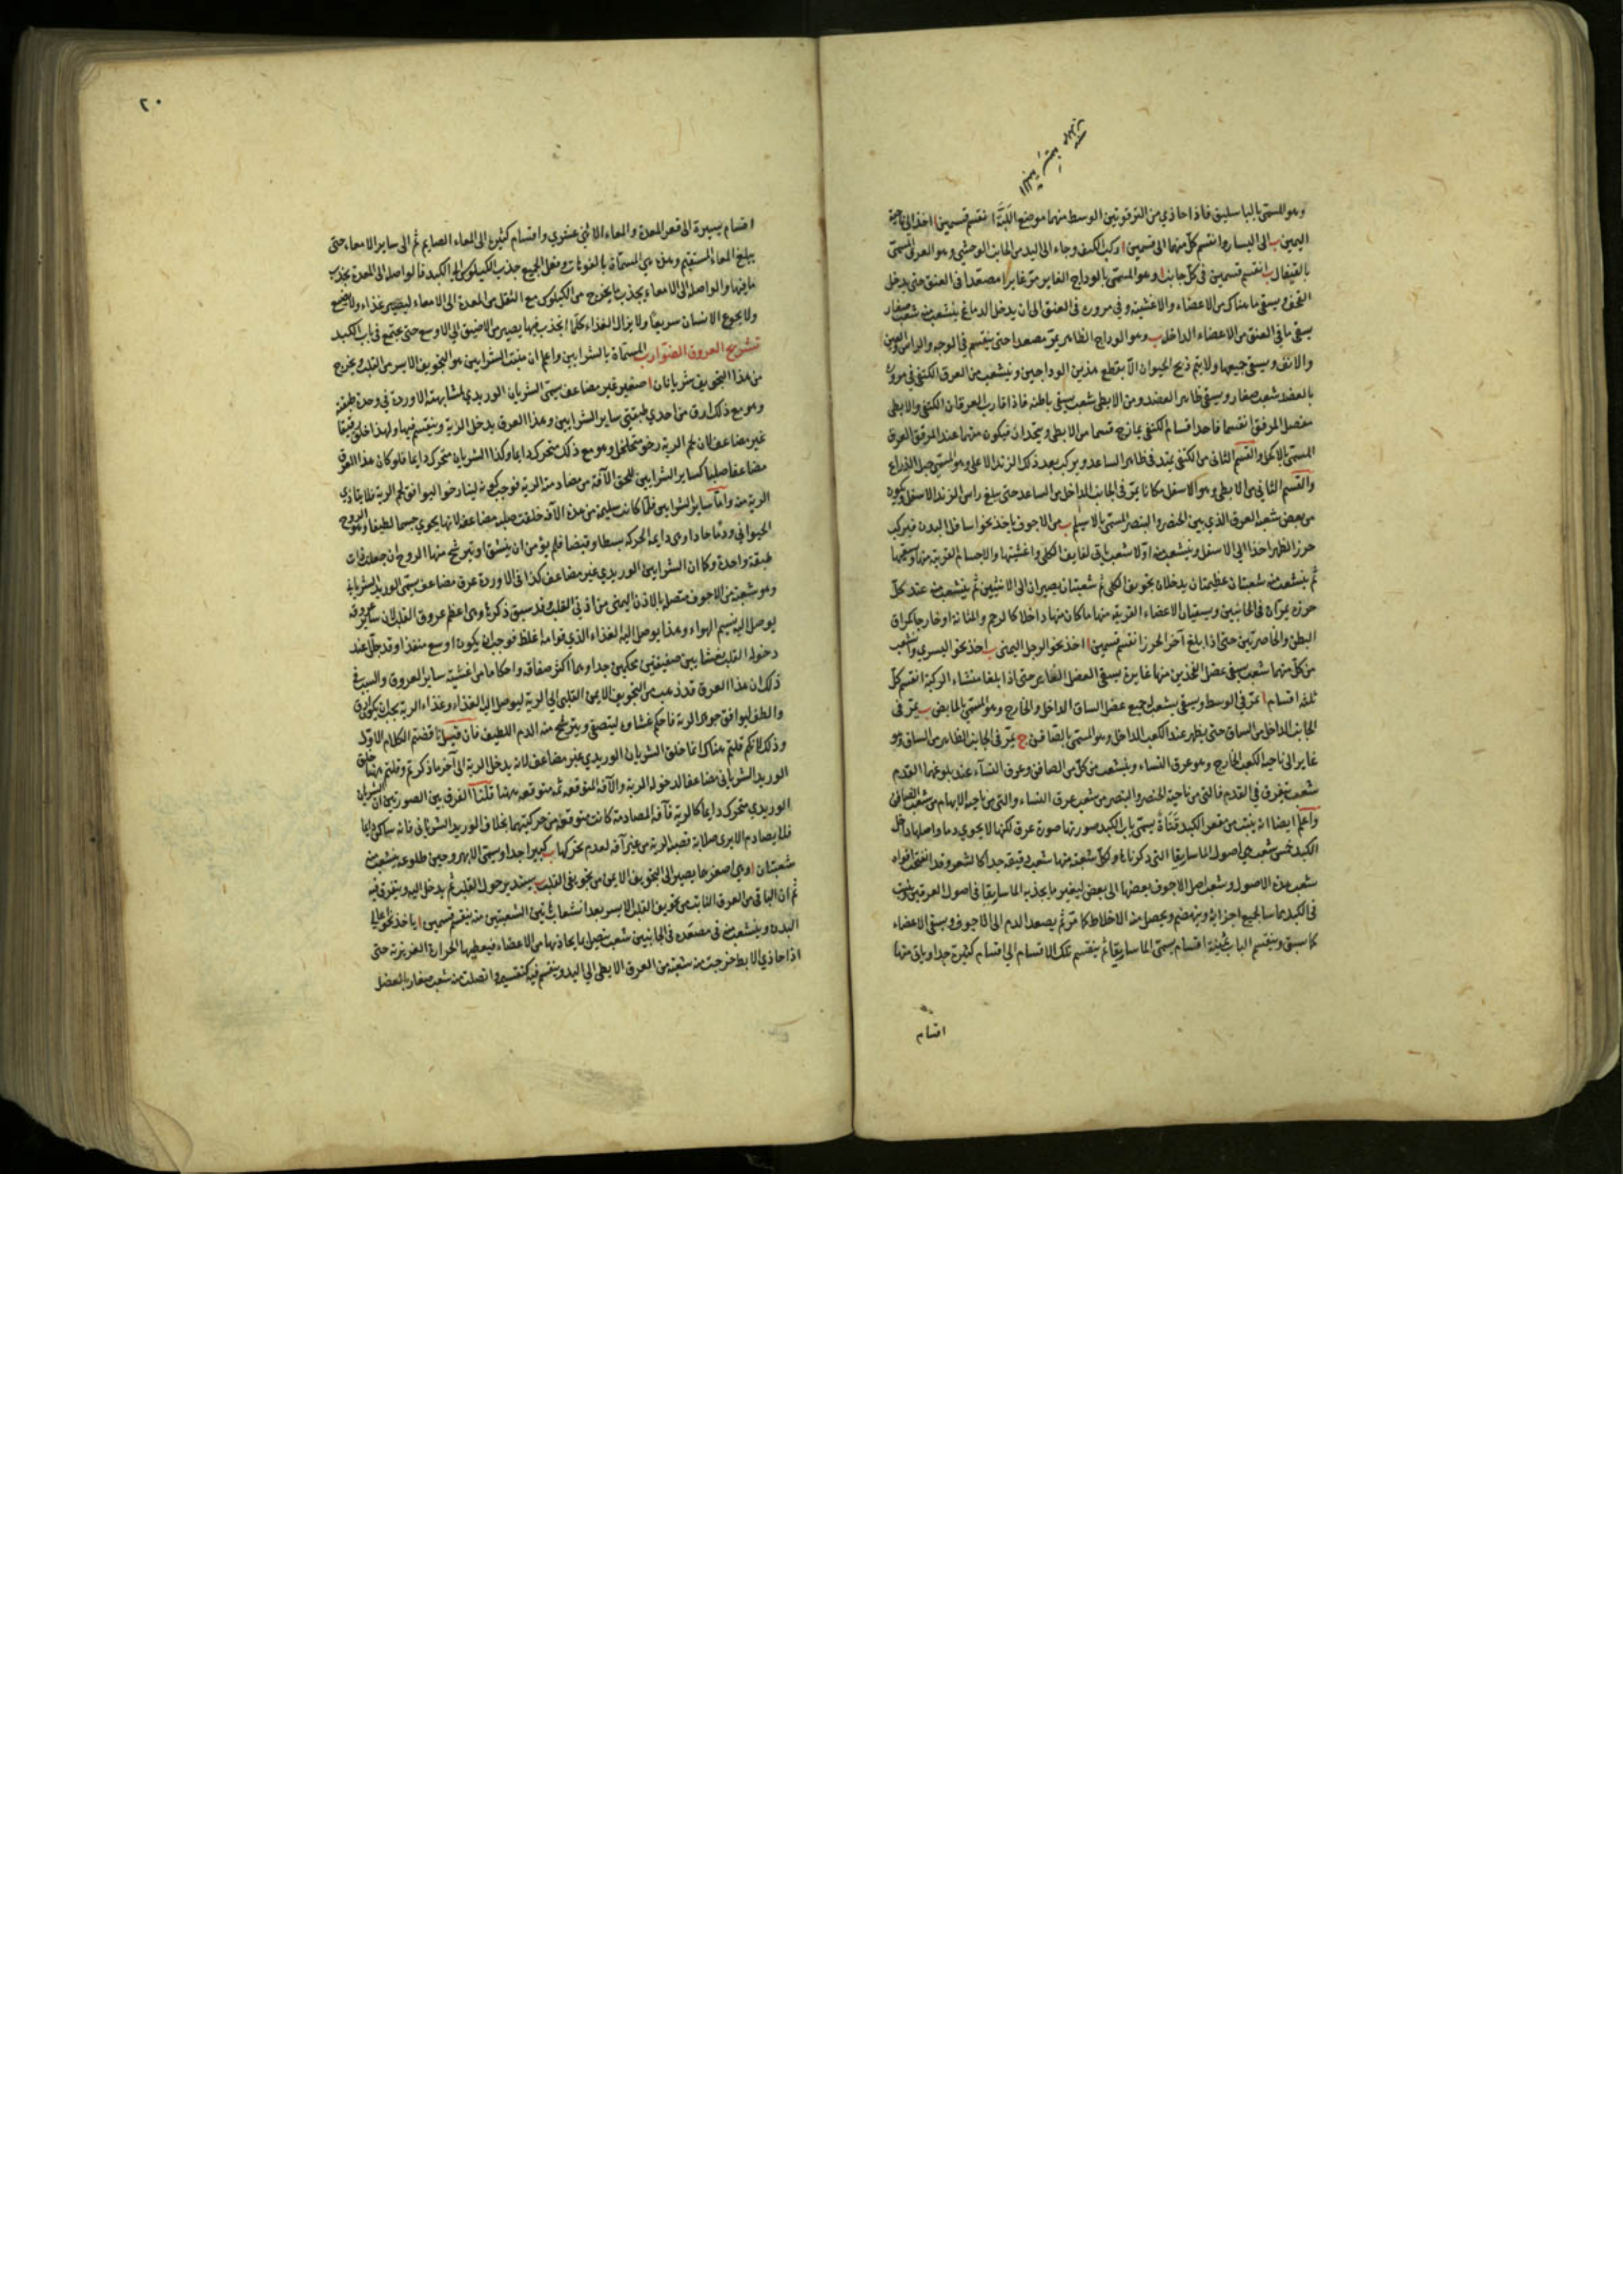 وهو المسمى بالباسليق فاذا حاذى من الترقوتين الوسط منهما موضع اللبة انقسم قسمين ا اخذ الى ناحية
اليمين ب الى اليسار وانقسم كل منهما الى قسمين ا ركب الكتف وجاء الى اليد من الجانب الوحشي وهو العرق المسمى
بالقيفال ب انقسم قسمين في كل جانب ا وهو المسمى بالوداج الغاير مر غايرا مصعدا في العنق حتى يدخل
القحف ويسقي ما هناك من الاعضاء والاغشية وفي مروره في العنق الى ان يدخل الدماغ ينشعب منه شعب صغار
يسقي ما في العنق من الاعضاء الداخلة ب وهو الوداج الظاهر يمر مصعدا حتى ينقسم في الوجه والراس والعين
والانف ويسقي جميعها ولا يتم ذبح الحيوان الا بقطع هذين الوداجين وينشعب من العرق الكتفي في مروره
بالعضد شعب صغار ويسقي ظاهر العضد ومن الابطي شعب يسقي باطنه فاذا قارب العرقان الكتفي والابطي
مفصل المرفق انقسما فاحد اقسام الكتفي يمازج قسما من الابطي ويتحدان فيكون منهما عند المرفق العرق
المسمى بالاكحل والقسم الثاني من الكتفي يمتد في ظاهر الساعد ويركب بعد ذلك الزند الاعلى وهو المسمى حبل الذراع
والقسم الثاني من الابطي وهو الاسفل مكانا يمر في الجانب الداخل من الساعد حتى يبلغ راس الزند الاسفل ويكون
من بعض شعبه العرق الذي بين الخنصر والبنصر المسمى بالاسيلم ب من الاجوف ياخذ نحو اسافل البدن فيركب
خرز الظهر اخذا الى الاسفل وينشعب منه اولا شعب ياتي لفايف الكلى واغشيتها والاجسام القريبة منها ويسقيها
ثم ينشعب منه شعبتان عظيمتان يدخلان تجويف الكلى ثم شعبتان يصيران الى الانثيين ثم ينشعب منه عند كل
خرزة عرقان في الجانبين ويسقيان الاعضاء القريبة منها ما كان منها داخلا كالرحم والمثانة او خارجا كمراق
البطن والخاصرتين حتى اذا بلغ آخر الخرز انقسم قسمين ا اخذ نحو الرجل اليمنى ب اخذ نحو اليسرى وينشعب
من كل منهما شعب يسقي عضل الفخذين منها غايرة يسقي العضل الغاير حتى اذا بلغا منشاء الركبة انقسم كل
ثلثة اقسام ا يمر في الوسط ويسقي بشعب له جميع عضل الساق الداخل والخارج وهو المسمى بالمابض ب يمر في
الجانب الداخل من الساق حتى يظهر عند الكعب الداخل وهو المسمى بالصافن ج يمر في الجانب الظاهر من الساق وهو
غاير الى ناحية الكعب الخارج وهو عرق النساء وينشعب من كل من الصافن وعرق النساء عند بلوغهما القدم
شعب يتفرق في القدم فالتي من ناحية الخنصر والبنصر من شعب عرق النساء والتي من ناحية الابهام من شعب الصافن
واعلم ايضا انه ينبت من مقعر الكبد قناة يسمى باب الكبد صورتها صورة عرق لكنها لا يحوي دما واصلها داخل
الكبد خمس شعب هي اصول الماساريقا التي ذكرناها وكل شعبة منها شعب دقيقة جدا كالشعر وقد انفتحت افواه
شعب هذه الاصول وشعب اصل الاجوف بعضها الى بعض ليغير ما يجذبه الماساريقا في اصول العرقين
في الكبد مماسا لجميع اجزائه وينهضم ويحصل منه الاخلاط كما مر ثم يصعد الدم الى الاجوف ويسقي الاعضاء
كما سبق وينقسم الباب ثمنية اقسام يسمى الماساريقا ثم ينقسم تلك الاقسام الى اقسام كثيرة جدا وياتي منها
اقسام
٢٠
اقسام يسيرة الى قعر المعدة والمعاء الاثني عشري واقسام كثيرة الى المعاء الصايم ثم الى ساير الامعاء حتى
يبلغ المعاء المستقيم وهذه هي المسماة بالفوهات وفعل الجميع جذب الكيلوس الى الكبد فالواصلة الى المعدة يجذب
ما فيها والواصلة الى الامعاء يجذب ما يخرج من الكيلوس مع الثفل من المعدة الى الامعاء ليصير غذاء ولا يضيع
ولا يجوع الانسان سريعا ولا يزال الغذاء كلما انجذب فيها يصير من الاضيق الى الاوسع حتى يجتمع في باب الكبد
تشريح العروق الضوارب المسماة بالشرايين واعلم ان منبت الشرايين هو التجويف الايسر من القلب ويخرج
من هذا التجويف شريانان ا صغير غير مضاعف يسمى الشريان الوريدي لمشابهته الاوردة في وحدة طبقته
وهو مع ذلك ارق من احدى طبقتي ساير الشرايين وهذا العرق يدخل الرية وينقسم فيها ولهذا خلق رقيقا
غير مضاعف لان لحم الرية رخو متخلخل وهو مع ذلك متحرك دايما وكذا الشريان متحرك دايما فلو كان هذا العرق
مضاعفا صلبا كساير الشرايين للحق الآفة من مصادمة الرية فوجب كونه لينا رخوا ليوافق لحم الرية فلا يتاذى
الرية منه واما ساير الشرايين فلما كانت سليمة من هذه الآفة خلقت صلبة مضاعفة لانها يحوي جسما لطيفا وهو الروح
الحيواني ودما حادا وهي دايمة الحركة بسطا وقبضا فلم يؤمن ان ينشق او يترشح منها الروح ان جعلت ذات
طبقة واحدة وكما ان الشرايين الوريدي غير مضاعف كذا في الاوردة عرق مضاعف يسمى الوريد الشرياني
وهو شعبة من الاجوف متصل بالاذن اليمنى من اذني القلب وقد سبق ذكره وهي اعظم عروق القلب لان ساير عروقه
يوصل اليه نسيم الهواء وهذا يوصل اليه الغذاء الذي قوامه اغلظ فوجب ان يكون اوسع منفذا وقد جلل عند
دخوله القلب بغشايين صفيقين محكمين جدا وهما اكثر صفاقة واحكاما من اغشية ساير العروق والسبب في
ذلك ان هذا العرق قد ذهب من التجويف الايمن القلبي الى الرية ليوصل اليها الغذاء وغذاء الرية يجب ان يكون ارق
والطف ليوافق جوهر الرية فاحكم غشاوه ليتصفى ويترشح منه الدم اللطيف فان قيل ناقضتم الكلام الاول
وذلك لانكم قلتم هناك انما خلق الشريان الوريدي غير مضاعف لانه يدخل الرية الى آخر ما ذكرتم وقلتم ههنا خلق
الوريد الشرياني مضاعفا لدخوله الرية والآفة المتوقعة ثمه متوقعة ههنا قلنا الفرق بين الصورتين ان الشريان
الوريدي متحرك دايما كالرية فآفة المصادمة كانت متوقعة من حركتيهما بخلاف الوريد الشرياني فانه ساكن دايما
فلا يصادم الا يرى صلابة قصبة الرية من غير آفة لعدم تحركها ب كبير جدا ويسمى الابهر وحين طلوعه ينشعب منه
شعبتان ا وهي اصغرهما يصير الى التجويف الايمن من تجويفي القلب ب يستدير حول القلب ثم يدخل اليه ويتفرق فيه
ثم ان الباقي من العرق النابت من تجويف القلب الايسر بعد انشعاب تين الشعبتين منه ينقسم قسمين ا ياخذ نحو اعالي
البدن وينشعب منه في مصعده في الجانبين شعب يتصل بما يحاذيها من الاعضاء فيعطيها الحرارة الغريزية حتى
اذا حاذى الابط خرجت منه شعبة من العرق الابطي الى اليد وينقسم فيه كتقسيمه واتصلت منه شعب صغار بالعضل